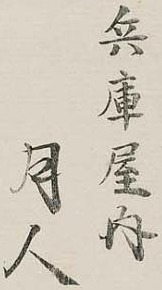 兵庫屋内
月人